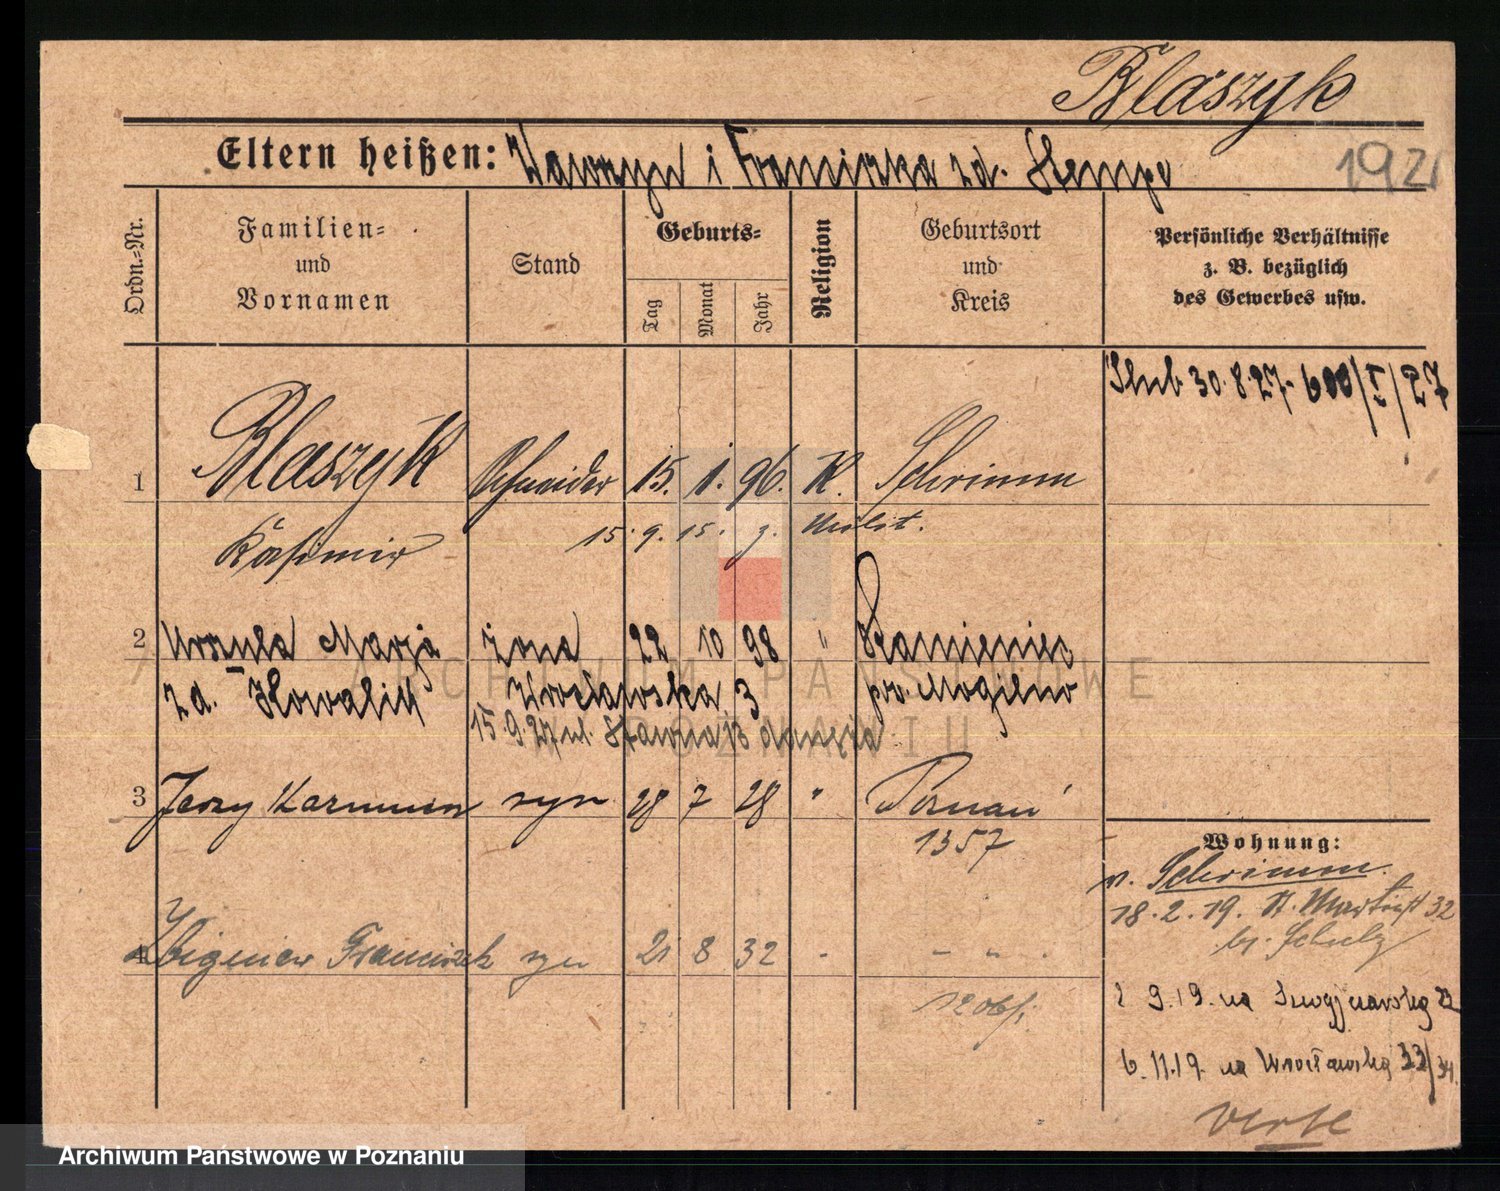 Blaszyk
Eltern heißen: Wawrzyn i Franciszka zd. Stempa
192
Ordn.-Nr.
Familien- und Vornamen
Stand
Geburts-
Tag
Monat
Jahr
Religion
Geburtsort und Kreis
Persönliche Verhältnisse
z. B. bezüglich
des Gewerbes usw.
Ślub 30.8.27 - 600/I/27
1 Blaszyk Schneider 15. 1. 96. K. Schrimm
Kasimir 15. 9. 15. z. Milit.
2 Urszula Marja żona 22 10 98 " Kamieniec
zd. Kowalik Wrocławska 3 pow. Mogilno
15.9.27 ul. Stawna 13
3 Jerzy syn 28 7 28 " Poznań
1357
Wohnung:
v. Schrimm.
18.2.19. St. Martinst 32
b. Schulz
4 Zbigniew Franciszek syn 21 8 32 - - " -
9.19. na 22
6.11.19. na Wrocławską 33/34.
verte
ARCHIWUM PAŃSTWOWE
W POZNANIU
Archiwum Państwowe w Poznaniu